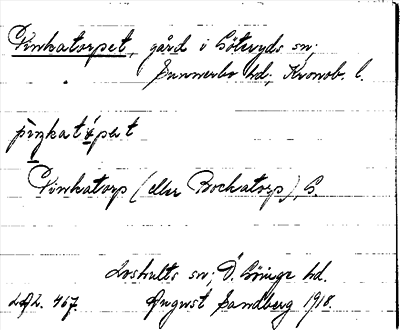 Pinkatorpet, gård i Göteryds sn,
Sunnerbo hd, Kronob. l.
pìŋkatɷ́rpet
Pinkatorp (eller Bockatorp), G.
Loshults sn, Ö. Göinge hd.
LAL. 467. August Sandberg 1918.